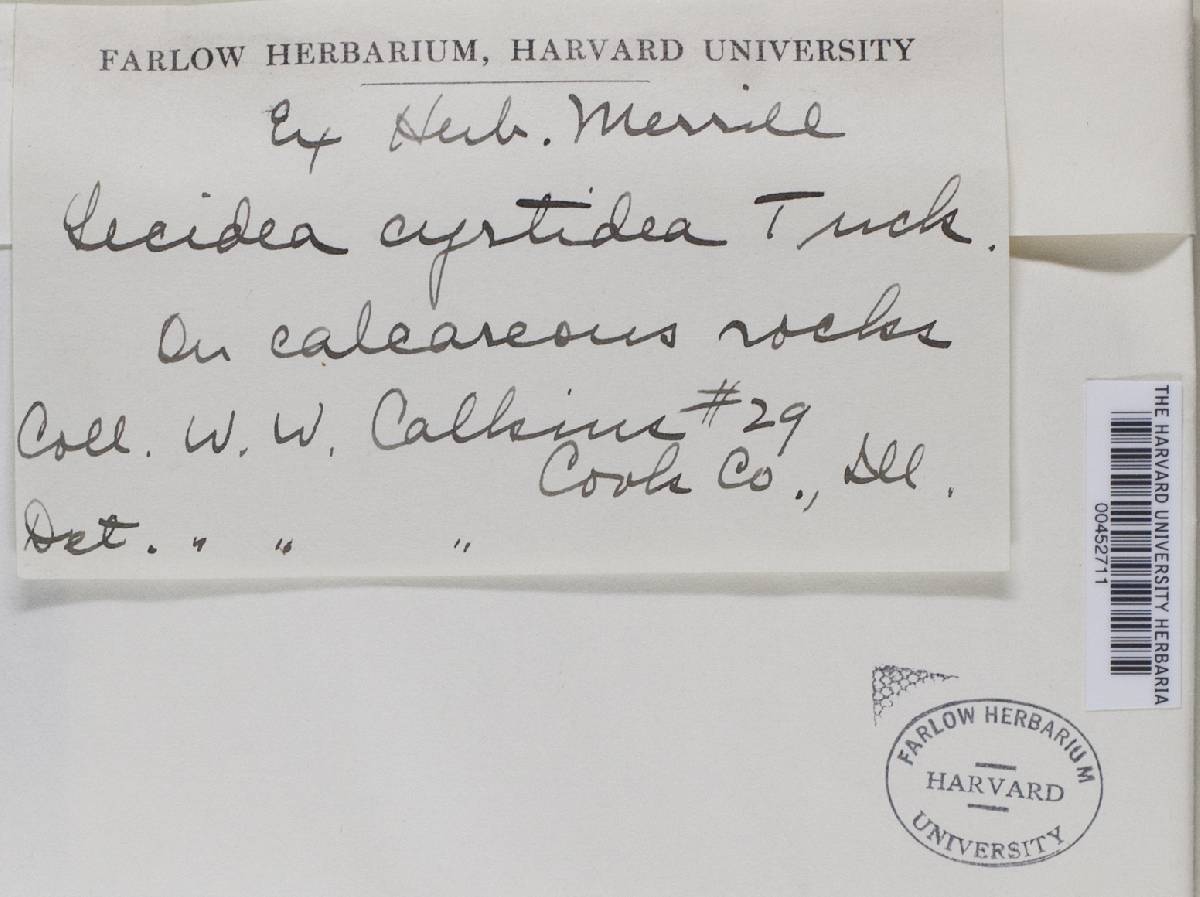 FARLOW HERBARIUM, HARVARD UNIVERSITY
Ex Herb. Merrill
Lecidea cyrtidea Tuck.
On calcareous rocks
Coll. W. W. Calkins #29
Cook Co., Ill.
Det. " " "
THE HARVARD UNIVERSITY HERBARIA
00452711
FARLOW HERBARIUM
HARVARD
UNIVERSITY